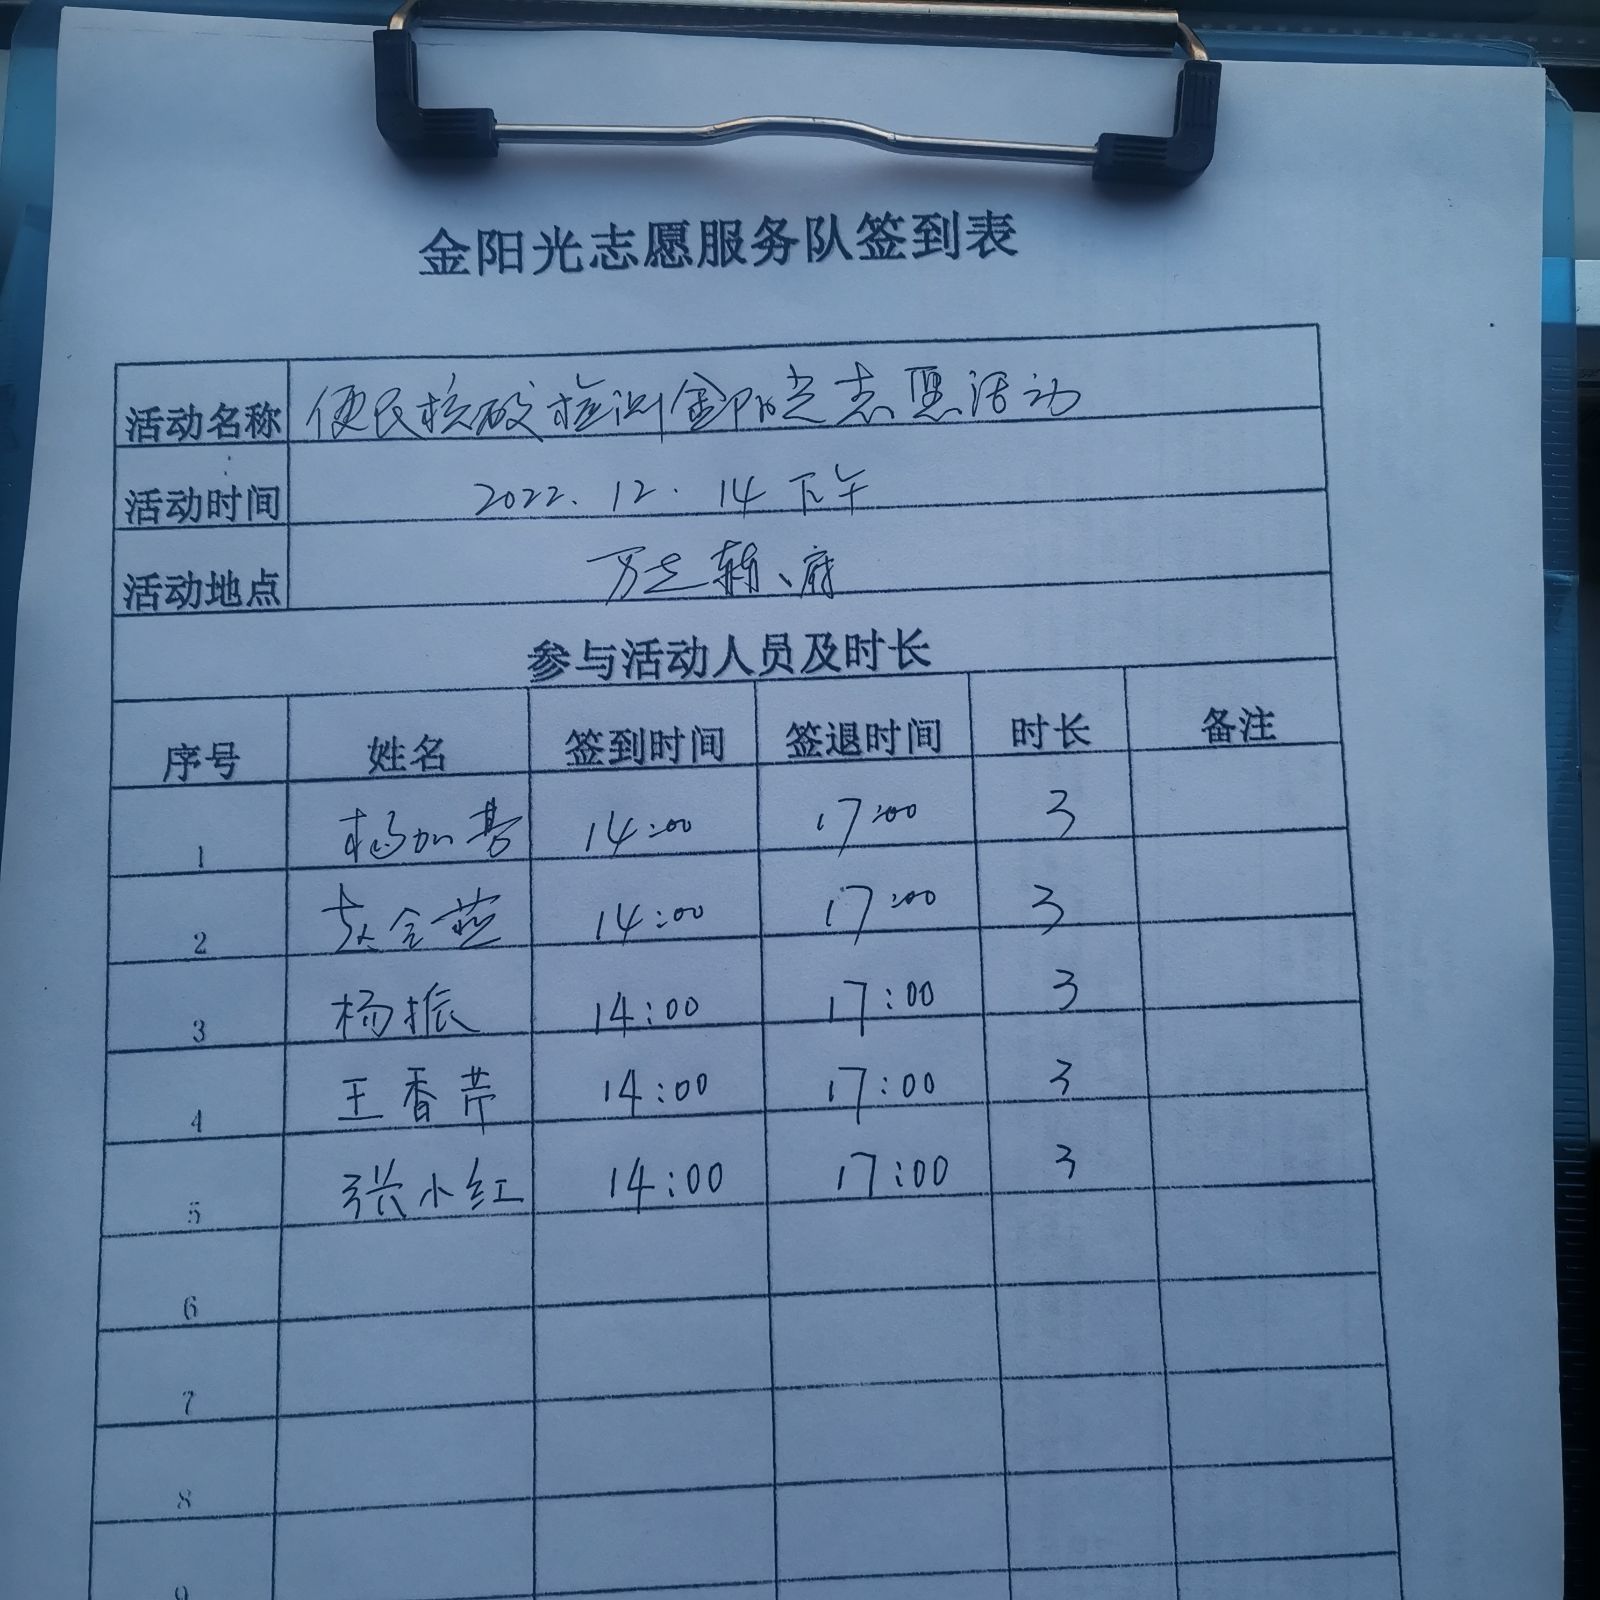 金阳光志愿服务队签到表
活动名称 便民核酸检测金阳光志愿活动
活动时间 2022.12.14下午
活动地点
参与活动人员及时长
序号 姓名 签到时间 签退时间 时长 备注
1 14:00 17:00 3
2 14:00 17:00 3
3 杨振 14:00 17:00 3
4 王香芹 14:00 17:00 3
5 张小红 14:00 17:00 3
6
7
8
9